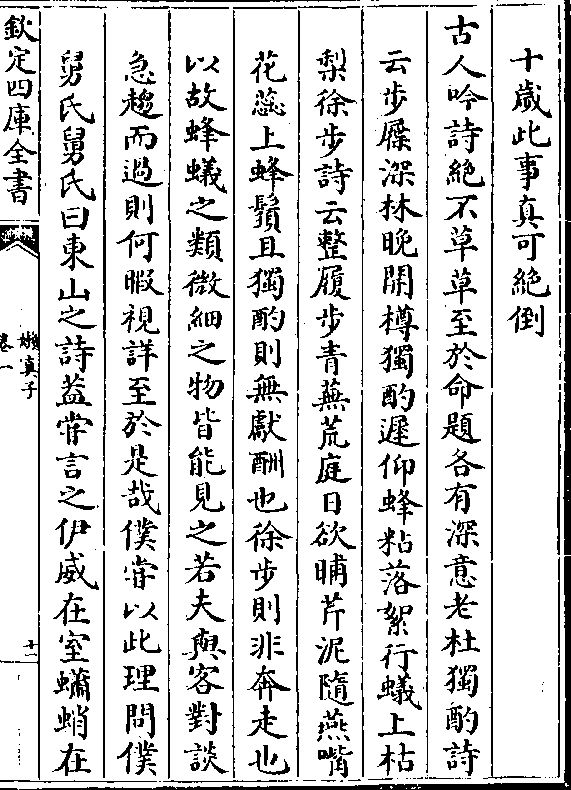 十歳此事真可絶倒
古人吟詩絶不草草至於命題各有深意老杜獨酌詩
云步屧深林晚開樽獨酌遲仰蜂粘落絮行蟻上枯
梨徐步詩云整履步青蕪荒庭日欲晡芹泥隨燕嘴
花蕊上蜂鬚且獨酌則無獻酬也徐步則非奔走也
以故蜂蟻之類微細之物皆能見之若夫與客對談
急趨而過則何暇視詳至於是哉僕嘗以此理問僕
舅氏舅氏曰東山之詩葢嘗言之伊威在室蠨蛸在
欽定四庫全書
嬾真子
卷一
十一